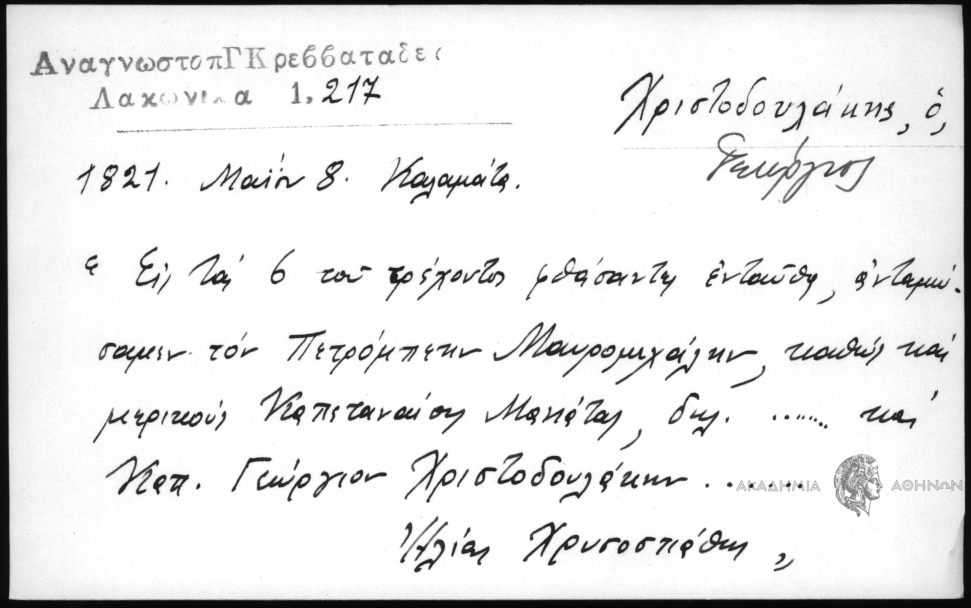 ΑναγνωστοπΓΚρεββαταδες
Λακωνικα 1, 217
Χριστοδουλάκης, ὁ,
Γεώργιος
1821. Μαΐου 8. Καλαμάτα.
"Εἰς τάς 6 τοῦ τρέχοντος φθάσαντες ἐνταῦθα, ἀνταμώ-
σαμεν τόν Πετρόμπεην Μαυρομιχάλην, καθώς καί
μερικούς Καπεταναίους Μανιάτας, δηλ. ........ καί
Καπ. Γεώργιον Χριστοδουλάκην ........
ΑΚΑΔΗΜΙΑ ΑΘΗΝΩΝ
Ἠλίας Χρυσοσπάθης"